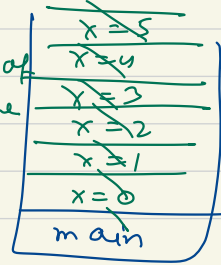 x = 5
of x = 4
e x = 3
x = 2
x = 1
x = 0
main